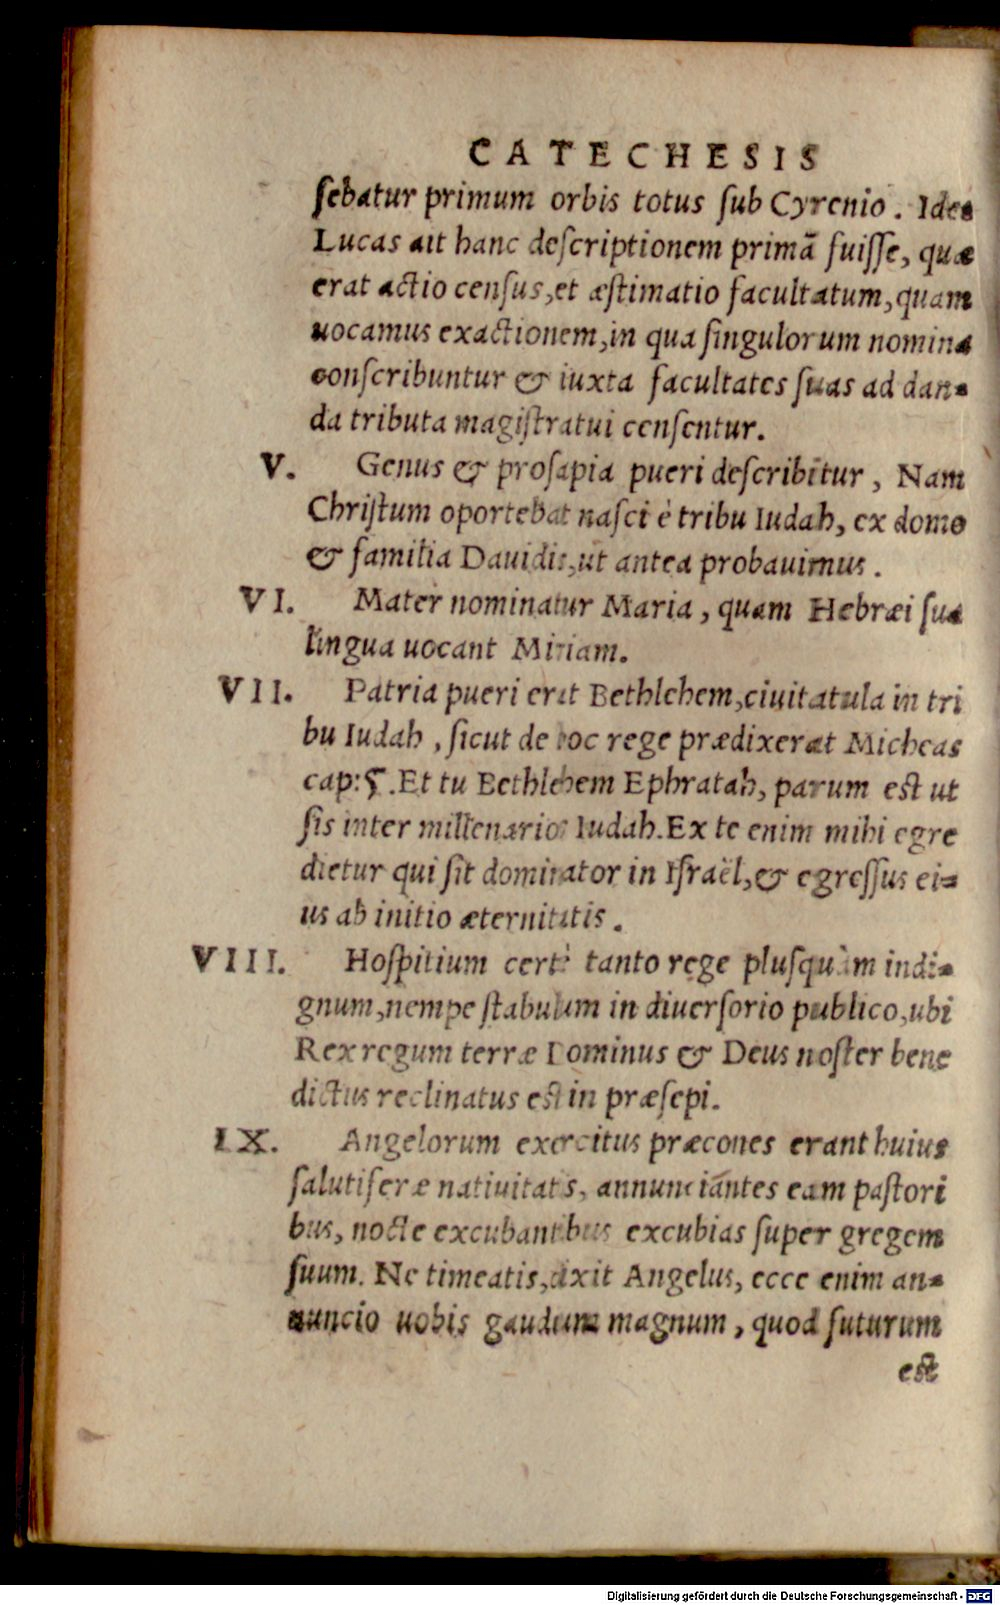 CATECHESIS
ſebatur primum orbis totus ſub Cyrenio. Ideo
Lucas ait hanc deſcriptionem primā fuiſſe, quæ
erat actio cenſus, et æſtimatio facultatum, quam
uocamus exactionem, in qua ſingulorum nomina
conſcribuntur & iuxta facultates ſuas ad dan-
da tributa magiſtratui cenſentur.
V. Genus & proſapia pueri deſcribitur, Nam
Chriſtum oportebat naſci è tribu Iudah, ex domo
& familia Dauidis, ut antea probauimus.
VI. Mater nominatur Maria, quam Hebræi ſua
lingua uocant Miriam.
VII. Patria pueri erat Bethlehem, ciuitatula in tri
bu Iudah, ſicut de hoc rege prædixerat Micheas
cap: 5. Et tu Bethlehem Ephratah, parum eſt ut
ſis inter millenarios Iudah. Ex te enim mihi egre
dietur qui ſit dominator in Iſraël, & egreſſus ei-
us ab initio æternitatis.
VIII. Hoſpitium certè tanto rege pluſquàm indi-
gnum, nempe ſtabulum in diuerſorio publico, ubi
Rex regum terræ Dominus & Deus noſter bene
dictus reclinatus eſt in præſepi.
IX. Angelorum exercitus præcones erant huius
ſalutiferæ natiuitatis, annunciantes eam paſtori
bus, nocte excubantibus excubias ſuper gregem
ſuum. Ne timeatis, dixit Angelus, ecce enim an-
nuncio uobis gaudium magnum, quod futurum
eſt
Digitalisierung gefördert durch die Deutsche Forschungsgemeinschaft - DFG